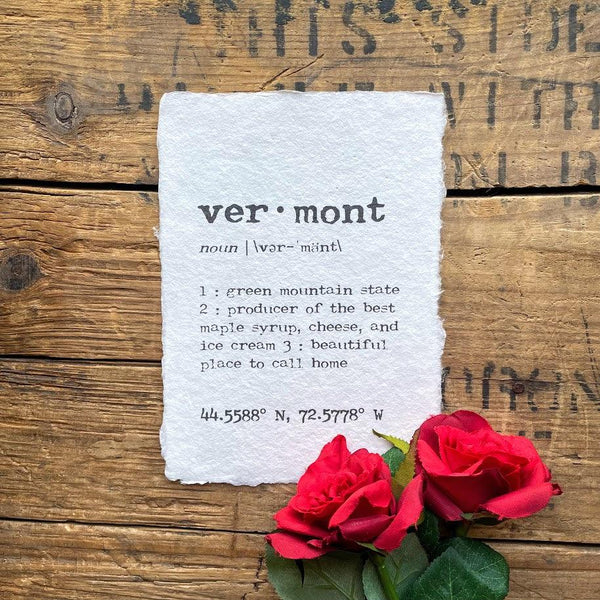 THIS SIDE
WITH
ver·mont
noun | \vər-ˈmänt\
1 : green mountain state
2 : producer of the best
maple syrup, cheese, and
ice cream 3 : beautiful
place to call home
44.5588° N, 72.5778° W